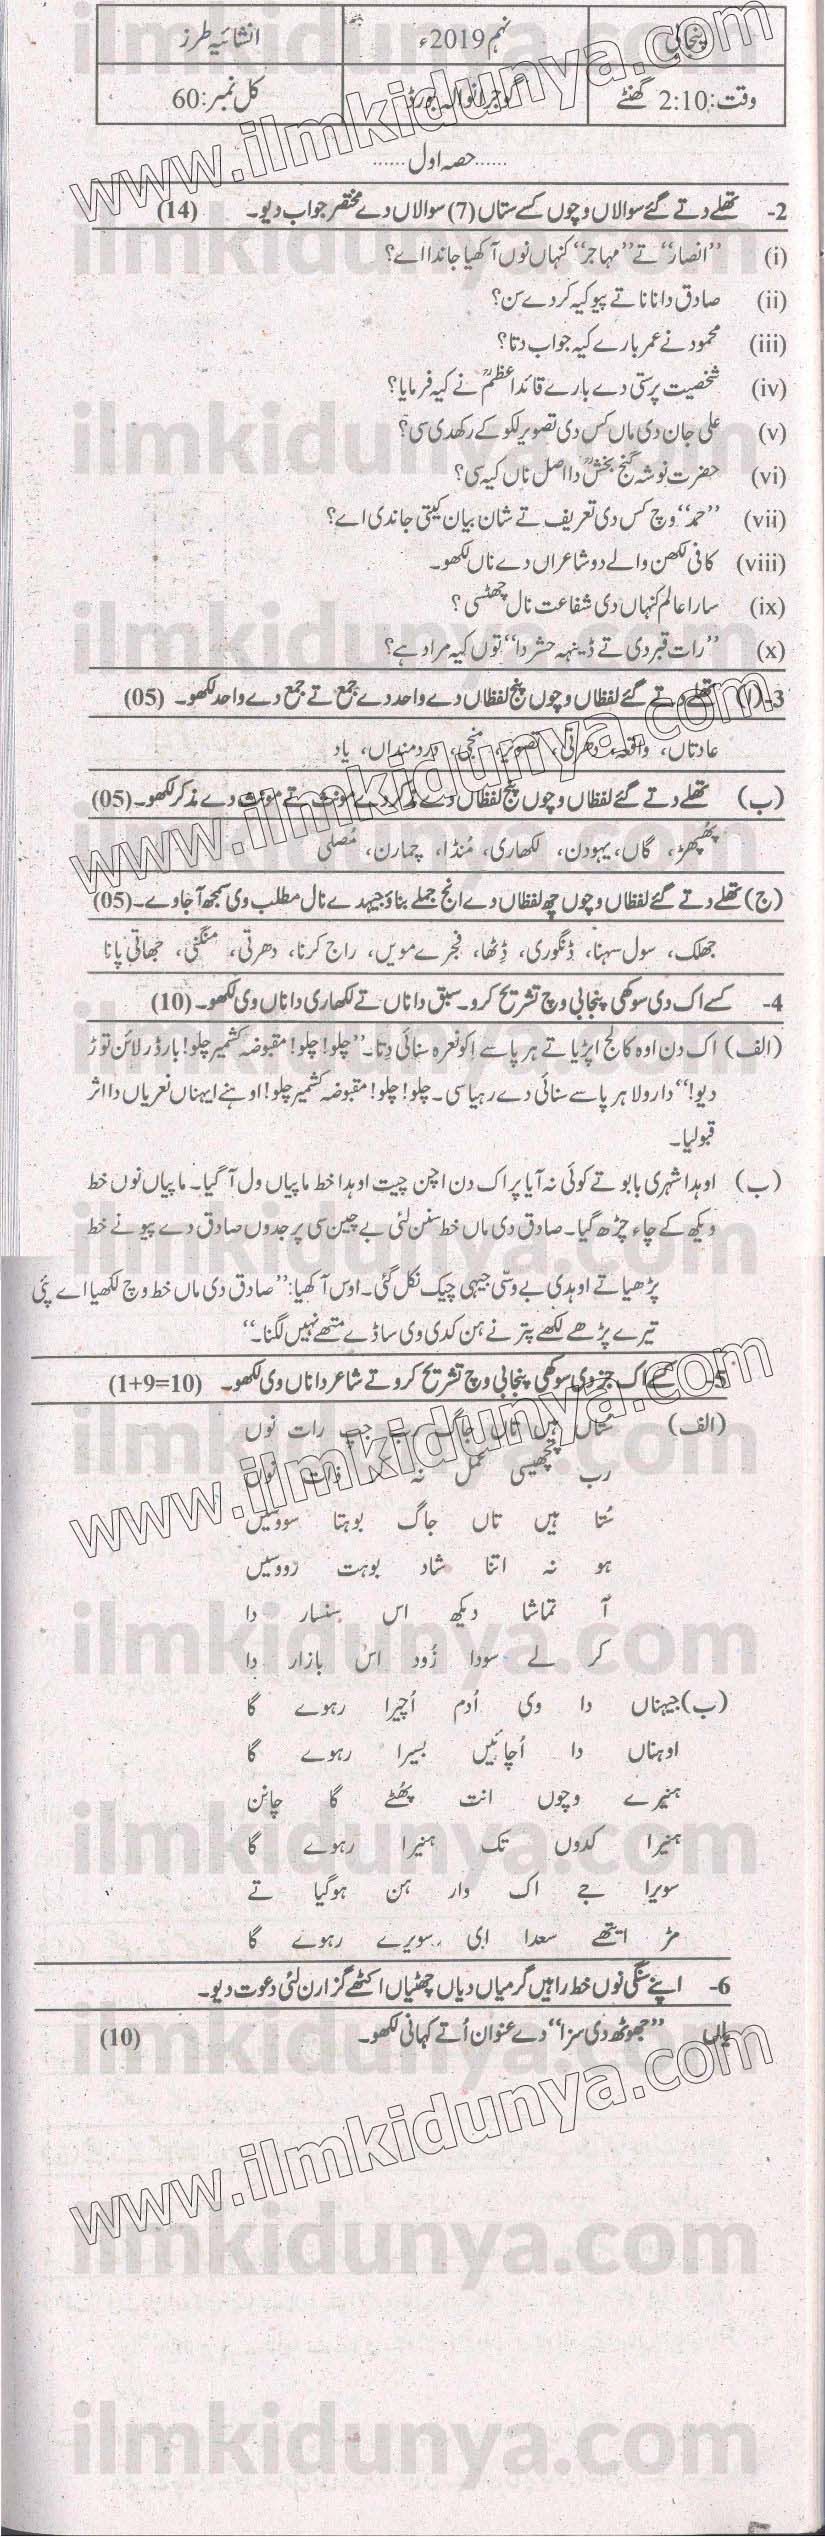 پنجابی
نہم 2019ء
انشائیہ طرز
وقت: 2:10 گھنٹے
گوجرانوالہ بورڈ
کل نمبر: 60
......حصہ اول......
2- تھلے دتے گئے سوالاں وچوں کسے ستاں (7) سوالاں دے مختصر جواب دیو۔ (14)
(i) ”انصار“ تے ”مہاجر“ کنہاں نوں آکھیا جاندا اے؟
(ii) صادق دا نانا تے پیو کیہ کردے سن؟
(iii) محمود نے عمر بارے کیہ جواب دتا؟
(iv) شخصیت پرستی دے بارے قائداعظمؒ نے کیہ فرمایا؟
(v) علی جان دی ماں کس دی تصویر لکو کے رکھدی سی؟
(vi) حضرت نوشہ گنج بخشؒ دا اصل ناں کیہ سی؟
(vii) ”حمد“ وچ کس دی تعریف تے شان بیان کیتی جاندی اے؟
(viii) کافی لکھن والے دو شاعراں دے ناں لکھو۔
(ix) سارا عالم کنہاں دی شفاعت نال چھٹسی؟
(x) ”رات قبر دی تے ڈینہہ حشر دا“ توں کیہ مراد ہے؟
3-(ا) تھلے دتے گئے لفظاں وچوں پنج لفظاں دے واحد دے جمع تے جمع دے واحد لکھو۔ (05)
عادتاں، واقعہ، دھرتی، تصویر، منجی، دردمنداں، یاد
(ب) تھلے دتے گئے لفظاں وچوں پنج لفظاں دے مذکر دے مونث تے مونث دے مذکر لکھو۔ (05)
پھپھڑ، گاں، یہودن، لکھاری، مُنڈا، چمارن، مُصلی
(ج) تھلے دتے گئے لفظاں وچوں چھ لفظاں دے انج جملے بناؤ جیہدے نال مطلب وی سمجھ آ جاوے۔ (05)
جھلک، سول سہنا، ڈنگوری، ڈِٹھا، فجرے مویں، راج کرنا، دھرتی، منگنی، جھاتی پانا
4- کسے اک دی سوکھی پنجابی وچ تشریح کرو۔ سبق دا ناں تے لکھاری دا ناں وی لکھو۔ (10)
(الف) اک دن اوہ کالج اپڑیا تے ہر پاسے اِکو نعرہ سنائی دِتا۔ ”چلو! چلو! مقبوضہ کشمیر چلو! بارڈر لائن توڑ
دیو!“ دا رولا ہر پاسے سنائی دے رہیا سی۔ چلو! چلو! مقبوضہ کشمیر چلو! اوہنے ایہناں نعریاں دا اثر
قبولیا۔
(ب) اوہدا شہری بابو تے کوئی نہ آیا پر اک دن اچن چیت اوہدا خط ماپیاں ول آ گیا۔ ماپیاں نوں خط
ویکھ کے چاء چڑھ گیا۔ صادق دی ماں خط سنن لئی بے چین سی پر جدوں صادق دے پیو نے خط
پڑھیا تے اوہدی بے وسّی جیہی چیک نکل گئی۔ اوس آکھیا: ”صادق دی ماں خط وچ لکھیا اے پئی
تیرے پڑھے لکھے پتر نے ہن کدی وی ساڈے متھے نہیں لگنا۔“
5- کسے اک جز دی سوکھی پنجابی وچ تشریح کرو تے شاعر دا ناں وی لکھو۔ (1+9=10)
(الف) سُتاں ہیں تاں جاگ رب جپ رات نوں
رب پچھیسی عمل نہ ذات نوں
سُتا ہیں تاں جاگ بوہتا سووسیں
ہو نہ اتنا شاد بوہت رووسیں
آ تماشا دیکھ اس سنسار دا
کر لے سودا زُود اس بازار دا
(ب) جیہناں دا وی اُدم اُچیرا رہوے گا
اوہناں دا اُچائیں بسیرا رہوے گا
ہنیرے وچوں انت پھُٹے گا چانن
ہنیرا کدوں تک ہنیرا رہوے گا
سویرا جے اک وار ہن ہو گیا تے
مڑ ایتھے سعدا ای سویرے رہوے گا
6- اپنے سنگی نوں خط راہیں گرمیاں دیاں چھٹیاں اکٹھے گزارن لئی دعوت دیو۔
یاں ”جھوٹھ دی سزا“ دے عنوان اُتے کہانی لکھو۔ (10)
www.ilmkidunya.com
ilmkidunya.com